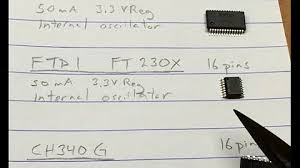 50mA 3.3V Reg
Internal oscillator
FTDI FT 230X 16 pins
50mA 3.3V Reg
Internal oscillator
CH340G 16 pins